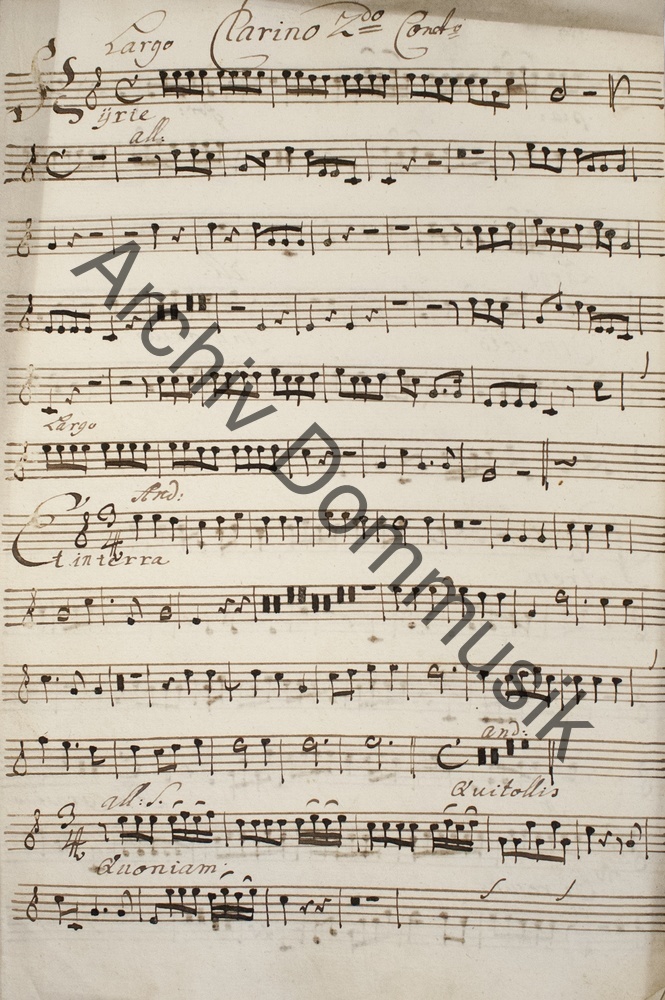 Largo Clarino 2do Concto
Kyrie
all:
Largo
And:
Et in terra
and:
Quitollis
all: S.
Quoniam
Archiv Dommusik